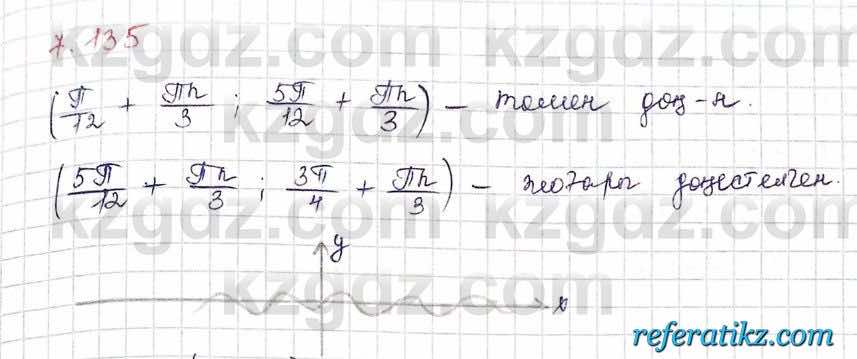 7.135
(π/12 + πn/3 ; 5π/12 + πn/3) – төмен доң-н.
(5π/12 + πn/3 ; 3π/4 + πn/3) – жоғары дөңестелген.
y
x
kzgdz.com kzgdz.com
kzgdz.com kzgdz.com
kzgdz.com kzgdz.com
referatikz.com